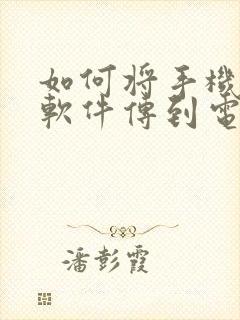 如何將手機
軟件傳到電
潘彭霞